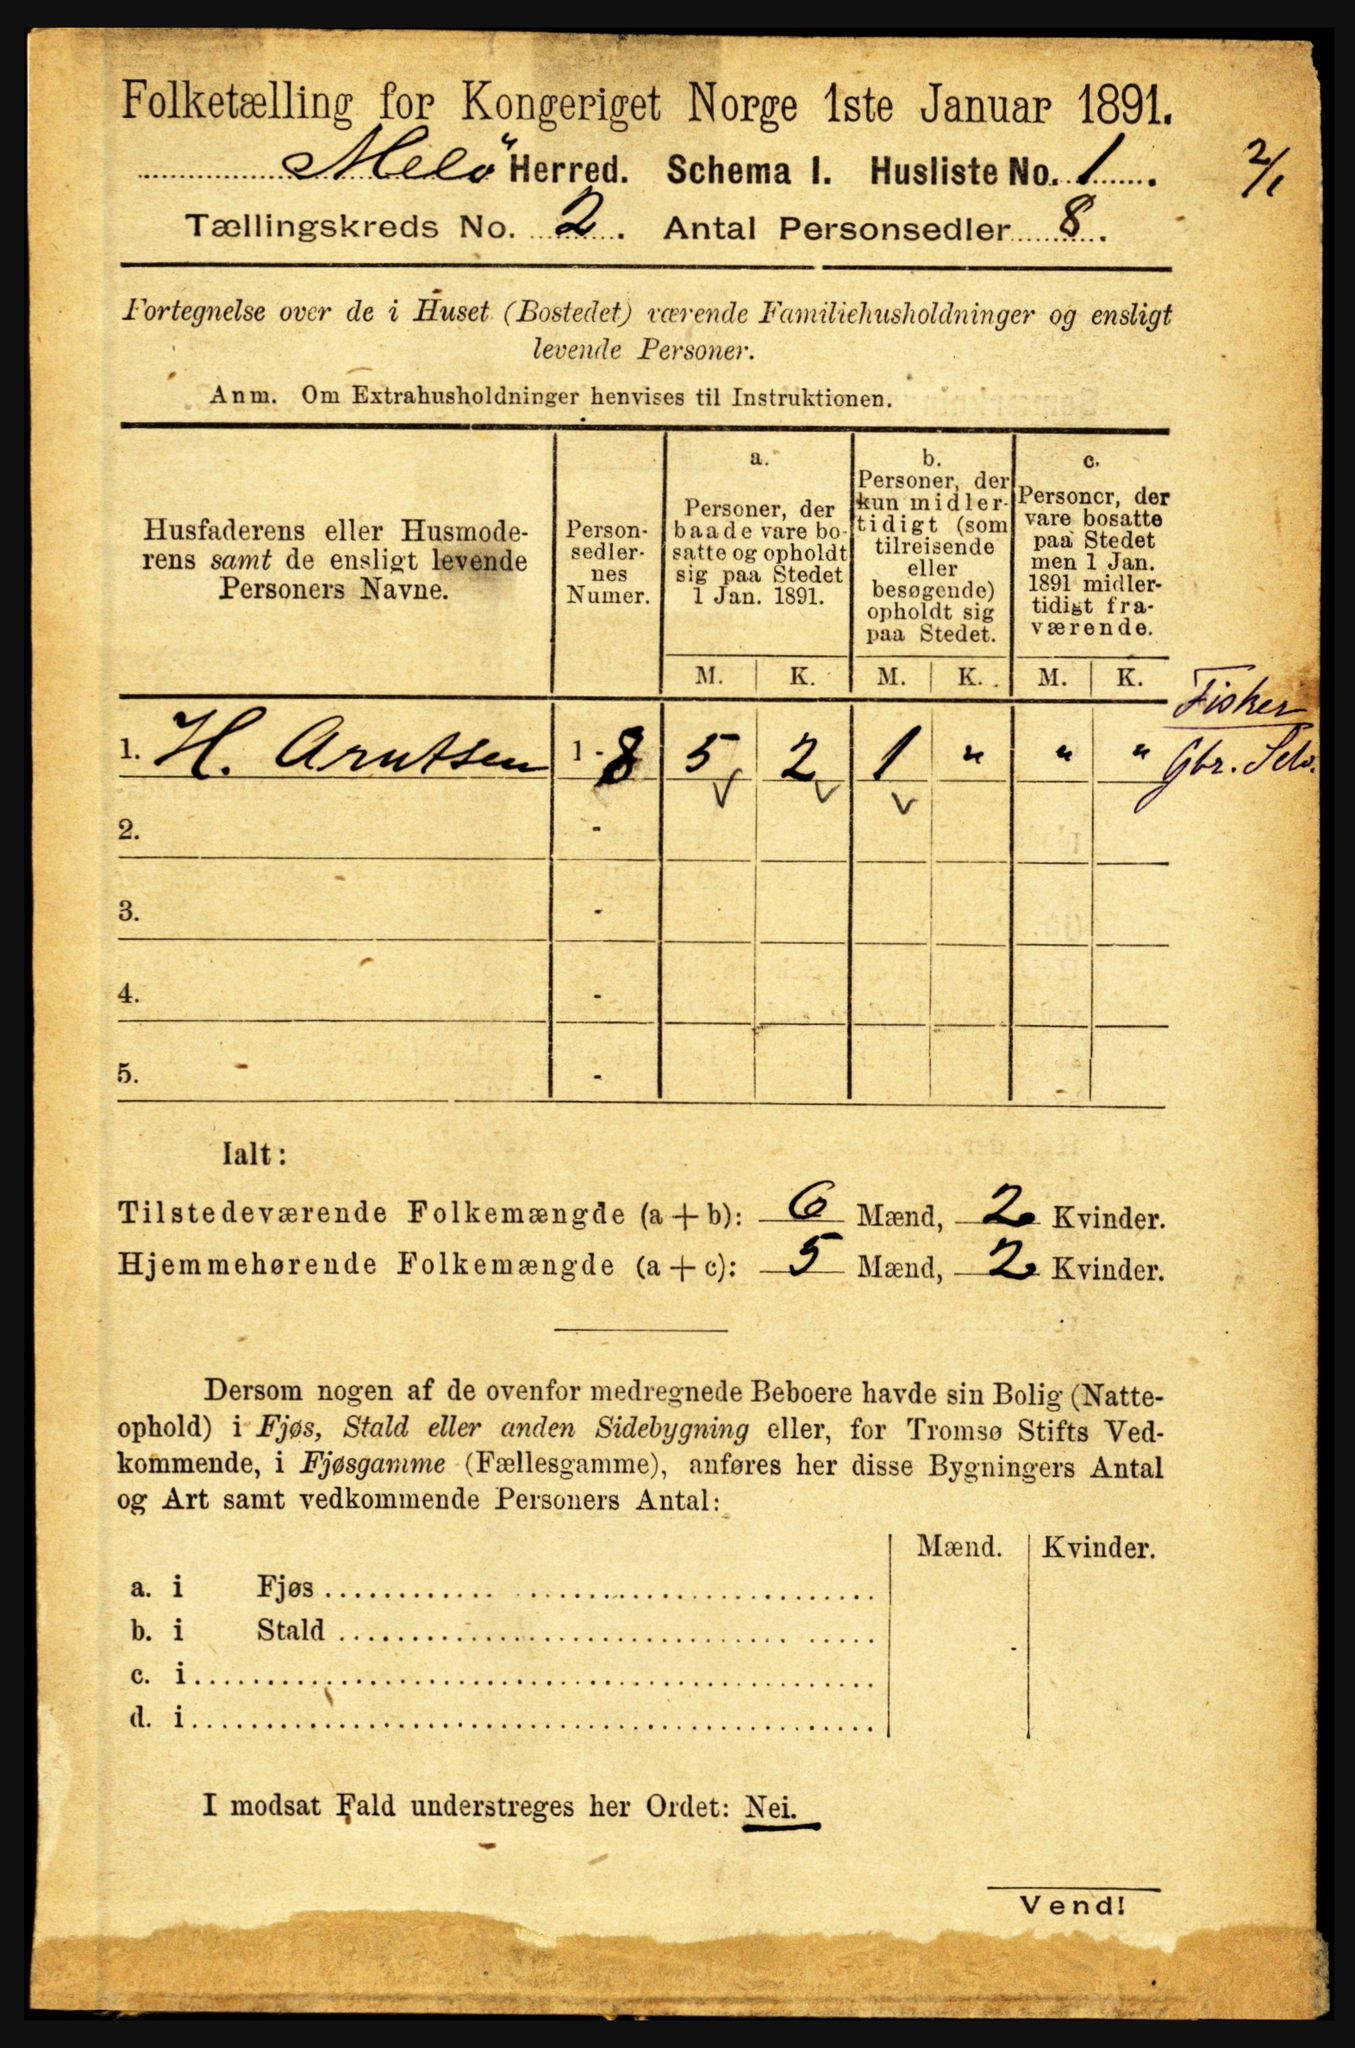 Folketælling for Kongeriget Norge 1ste Januar 1891.
Melö Herred. Schema I. Husliste No. 1.
2/1
Tællingskreds No. 2. Antal Personsedler 8.
Fortegnelse over de i Huset (Bostedet) værende Familiehusholdninger og ensligt
levende Personer.
Anm. Om Extrahusholdninger henvises til Instruktionen.
Husfaderens eller Husmode-
rens samt de ensligt levende
Personers Navne.
Person-
sedler-
nes
Numer.
a.
Personer, der
baade vare bo-
satte og opholdt
sig paa Stedet
1 Jan. 1891.
b.
Personer, der
kun midler-
tidigt (som
tilreisende
eller
besøgende)
opholdt sig
paa Stedet.
c.
Personer, der
vare bosatte
paa Stedet
men 1 Jan.
1891 midler-
tidigt fra-
værende.
M. K. M. K. M. K.
Fisker
1. H. Arntsen 1 - 8 5 2 1 " " " Gbr. Selv.
2. -
3. -
4. -
5. -
Ialt:
Tilstedeværende Folkemængde (a + b): 6 Mænd, 2 Kvinder.
Hjemmehørende Folkemængde (a + c): 5 Mænd, 2 Kvinder.
Dersom nogen af de ovenfor medregnede Beboere havde sin Bolig (Natte-
ophold) i Fjøs, Stald eller anden Sidebygning eller, for Tromsø Stifts Ved-
kommende, i Fjøsgamme (Fællesgamme), anføres her disse Bygningers Antal
og Art samt vedkommende Personers Antal:
Mænd. Kvinder.
a. i Fjøs
b. i Stald
c. i
d. i
I modsat Fald understreges her Ordet: Nei.
Vend!